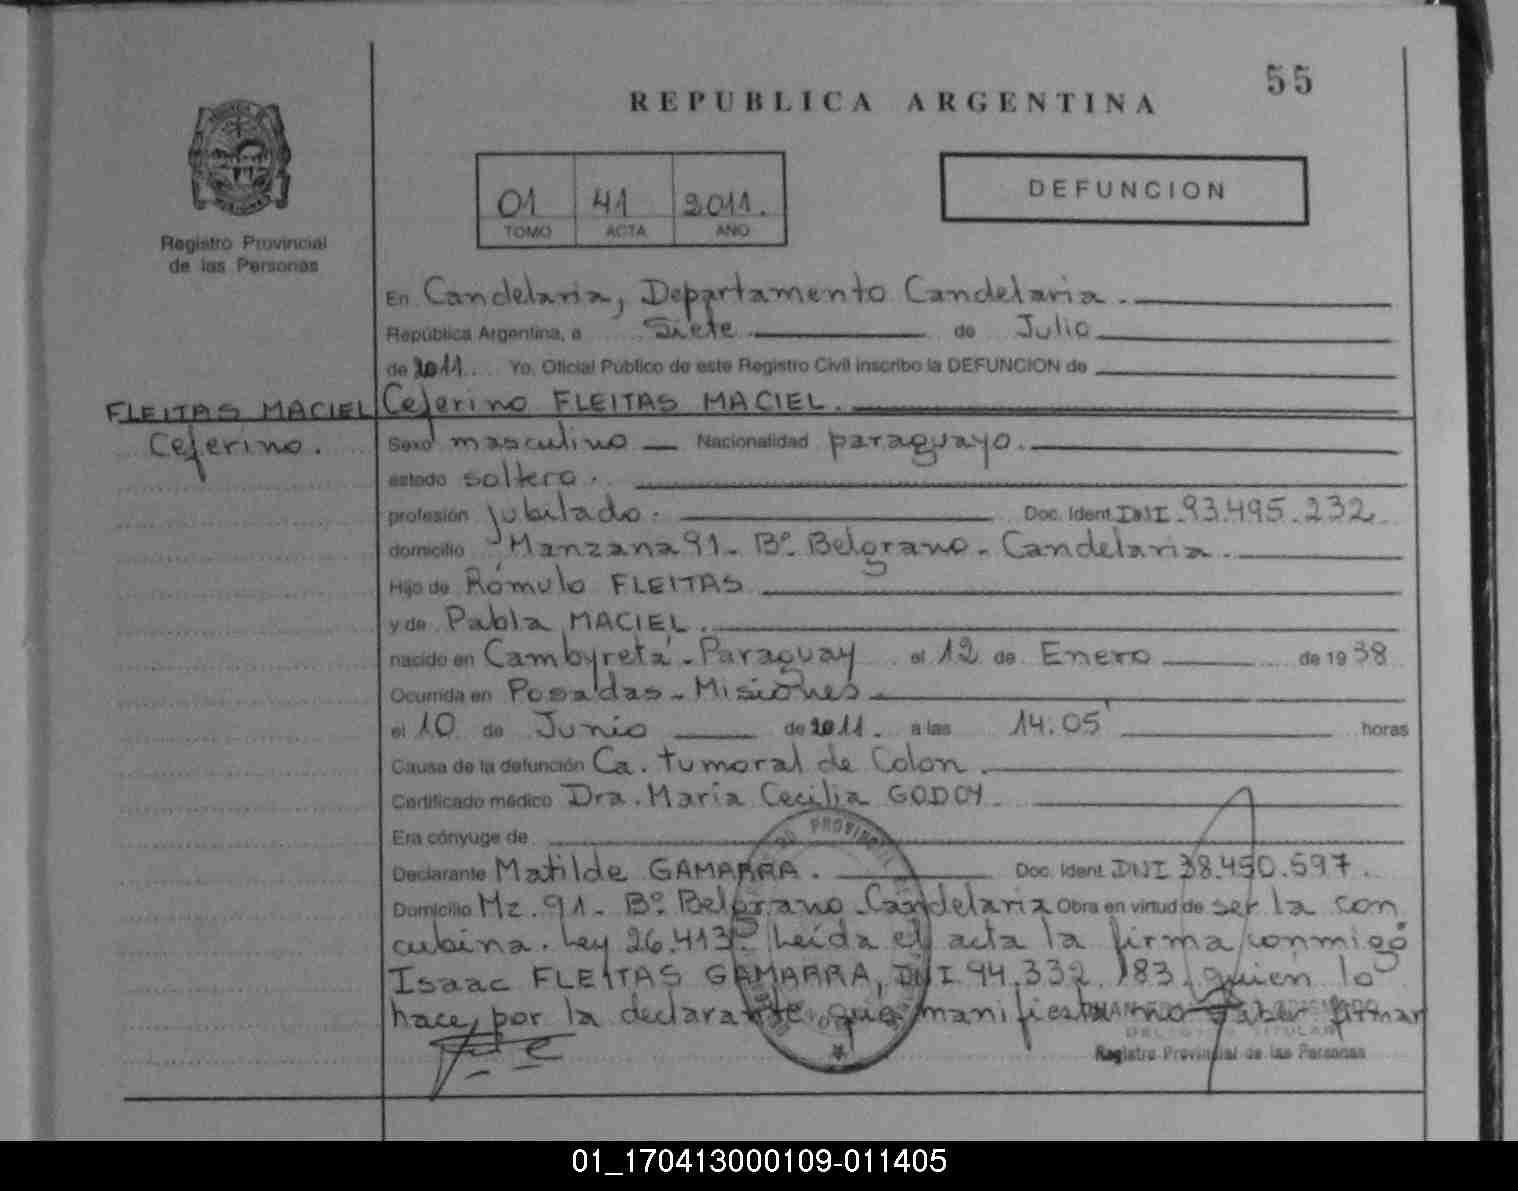 55
REPUBLICA ARGENTINA
Registro Provincial
de las Personas
01 41 2011.
TOMO ACTA AÑO
DEFUNCION
En Candelaria, Departamento Candelaria.
República Argentina, a Siete de Julio
de 2011. Yo, Oficial Público de este Registro Civil inscribo la DEFUNCION de
FLEITAS MACIEL Ceferino FLEITAS MACIEL.
Ceferino. Sexo masculino Nacionalidad paraguayo.
estado soltero.
profesión jubilado. Doc. Ident. DNI.93.495.232
domicilio Manzana 91- Bº. Belgrano- Candelaria.
Hijo de Rómulo FLEITAS
y de Pabla MACIEL.
nacido en Cambyretá-Paraguay el 12 de Enero de 1938
Ocurrida en Posadas-Misiones
el 10 de Junio de 2011. a las 14.05' horas
Causa de la defunción Ca. tumoral de Colon.
Certificado médico Dra. María Cecilia GODOY.
Era cónyuge de
Declarante Matilde GAMARRA. Doc. Ident. DNI 38.450.597.
Domicilio Mz. 91- Bº. Belgrano-Candelaria Obra en virtud de ser la con
cubina. Ley 26.413. Leída el acta la firma conmigo
Isaac FLEITAS GAMARRA, DNI 94.332. quien lo
hace, por la declarante que manifiesta no saber firmar
TITULAR
Registro Provincial de las Personas
PROVINCIAL
01_170413000109-011405